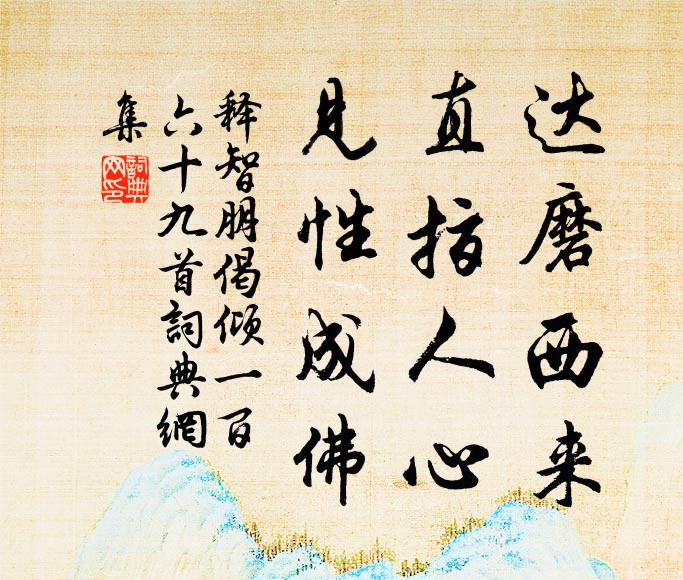 达磨西来
直指人心
见性成佛
释智朋偈倾一百
六十九首詞典網
集
詞典
网印